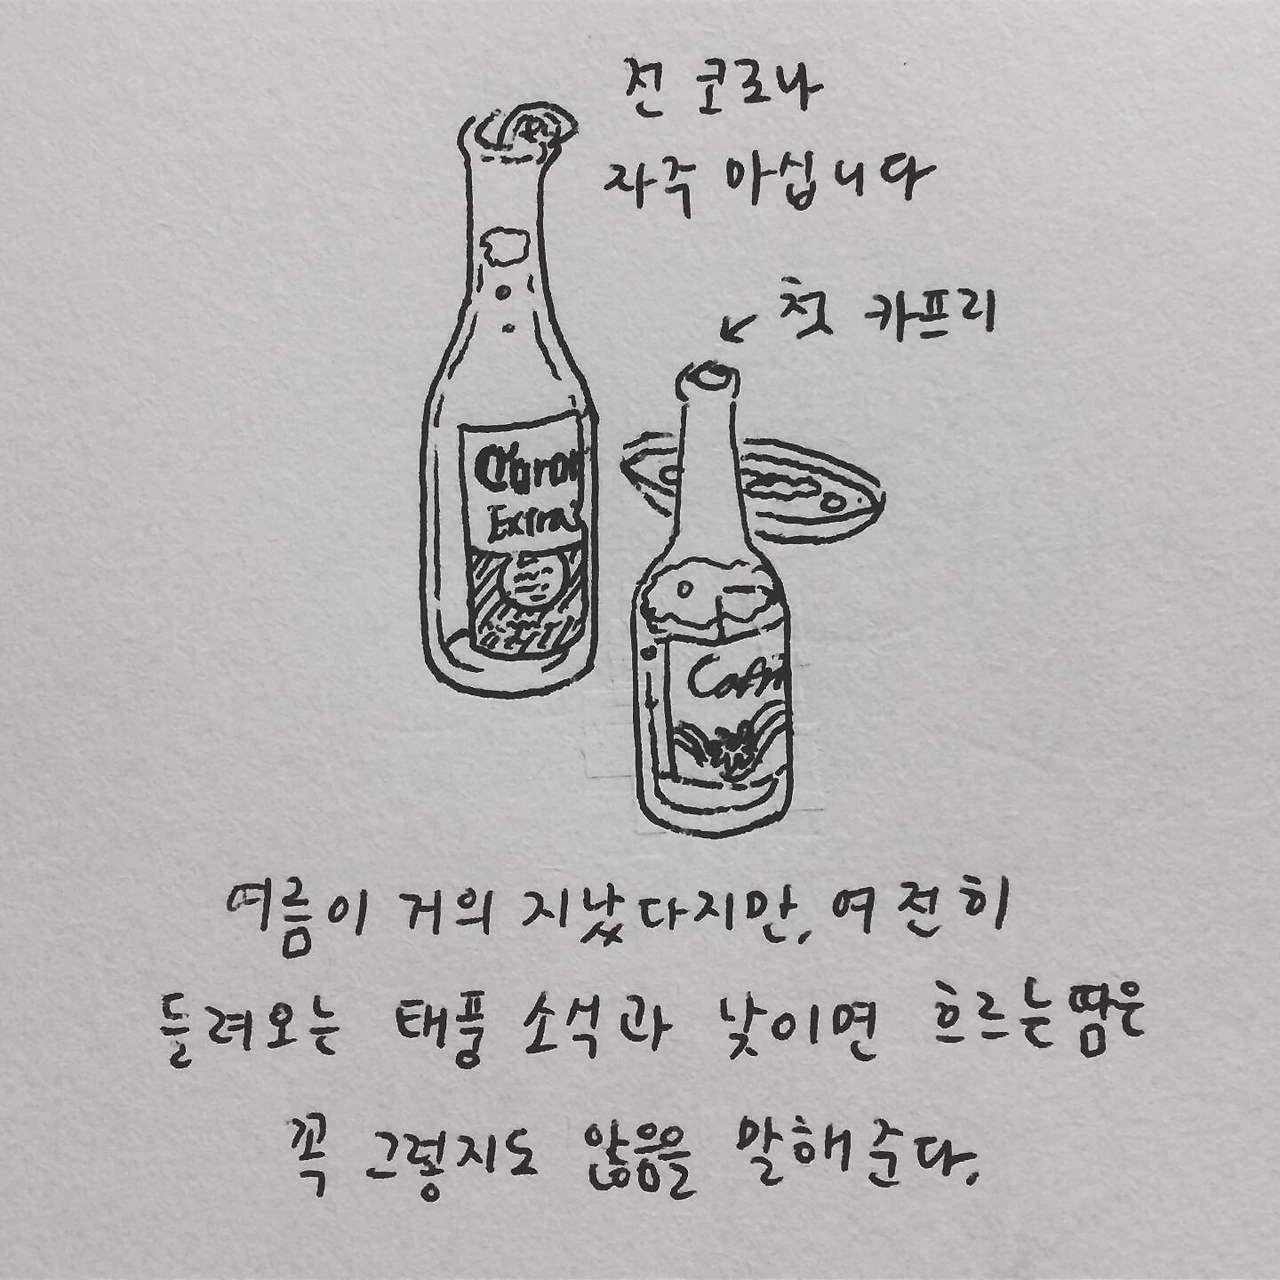 전 코로나
자주 마십니다
첫 카프리
Coron
Extra
Cafri
여름이 거의 지났다지만, 여전히
들려오는 태풍 소식과 낮이면 흐르는 땀은
꼭 그렇지도 않음을 말해준다.